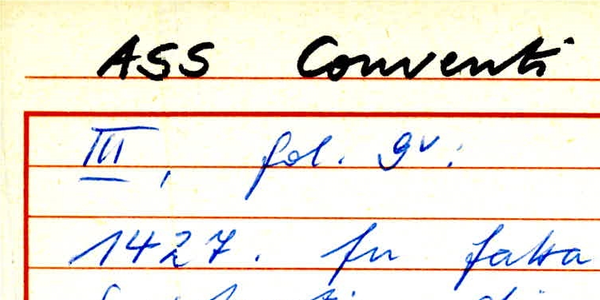 ASS Conventi
III, fol. 9v:
1427. fu fatta